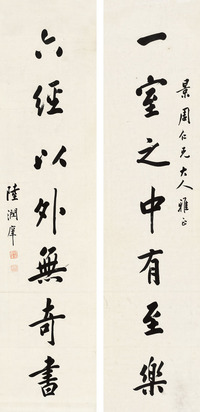 景周仁兄大人雅正
一室之中有至樂
六經以外無奇書
陸潤庠